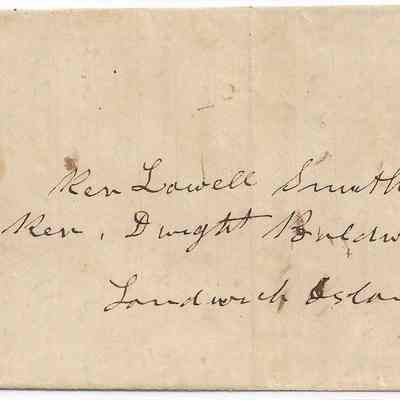 Rev Lowell Smith
Rev, Dwight Baldw
Sandwich Islan